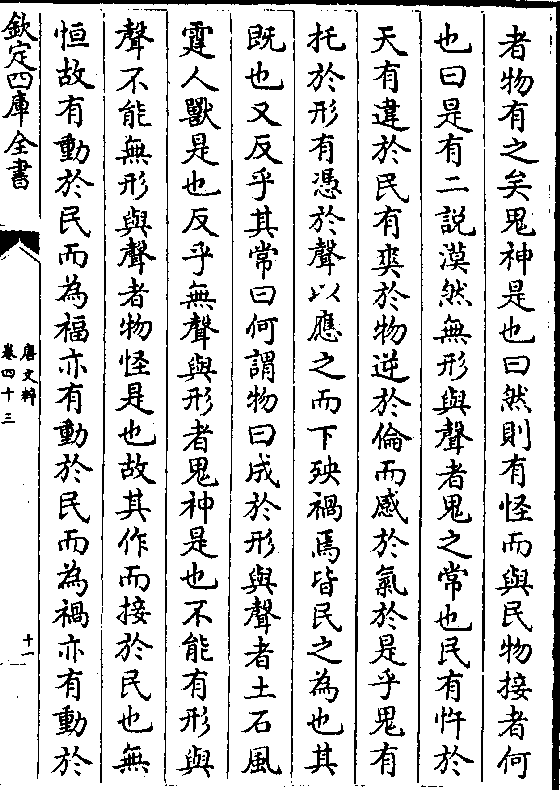 者物有之矣鬼神是也曰然則有怪而與民物接者何
也曰是有二說漠然無形與聲者鬼之常也民有忤於
天有違於民有爽於物逆於倫而感於氣於是乎鬼有
托於形有憑於聲以應之而下殃禍焉皆民之為也其
既也又反乎其常曰何謂物曰成於形與聲者土石風
霆人獸是也反乎無聲與形者鬼神是也不能有形與
聲不能無形與聲者物怪是也故其作而接於民也無
恒故有動於民而為福亦有動於民而為禍亦有動於
欽定四庫全書
唐文粹
卷四十三
十一